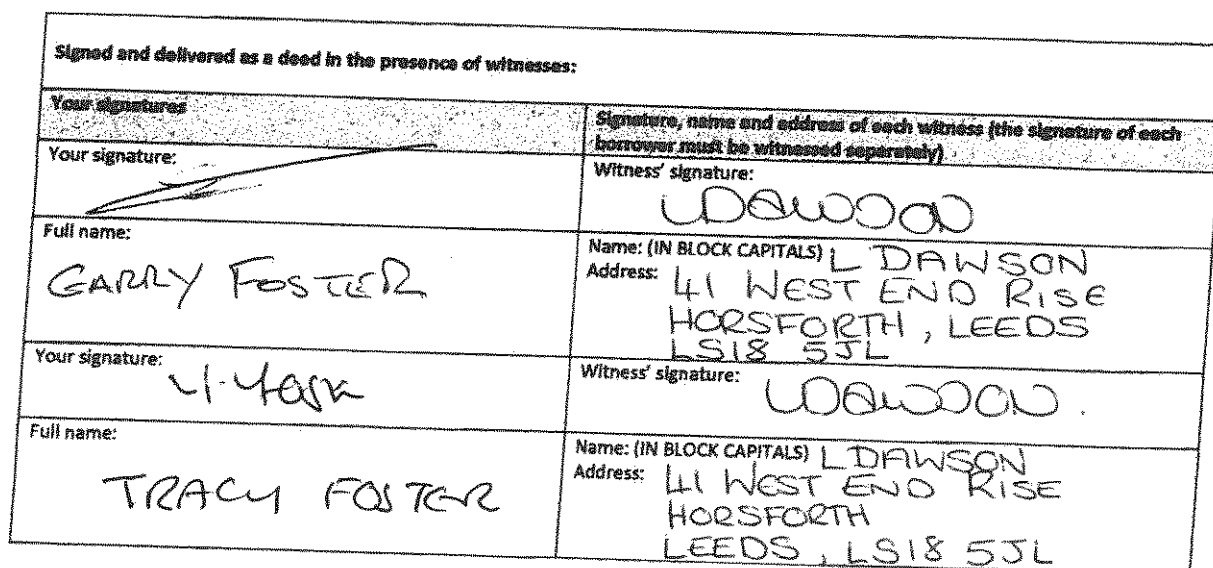 Signed and delivered as a deed in the presence of witnesses:
Your signatures
Signature, name and address of each witness (the signature of each
borrower must be witnessed separately)
Your signature:
Witness' signature:
LDawson
Full name:
GARRY FOSTER
Name: (IN BLOCK CAPITALS) L DAWSON
Address: 41 WEST END RISE
HORSFORTH, LEEDS
LS18 5JL
Your signature:
Witness' signature:
LDawson.
Full name:
TRACY FOSTER
Name: (IN BLOCK CAPITALS) L DAWSON
Address: 41 WEST END RISE
HORSFORTH
LEEDS, LS18 5JL